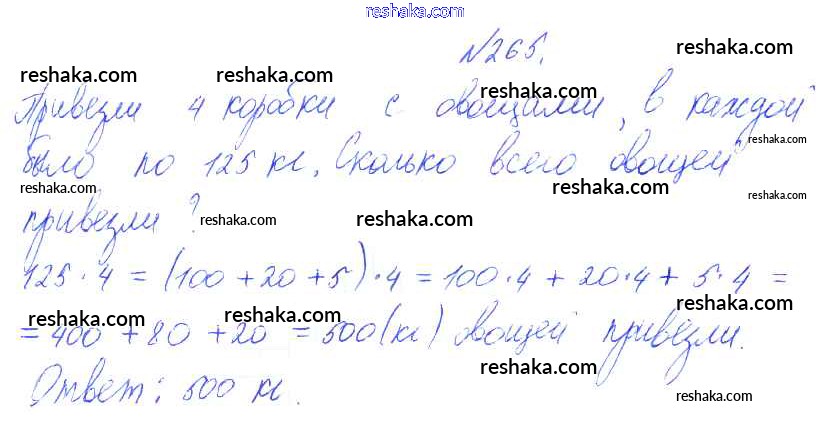 reshaka.com
№265. reshaka.com
reshaka.com reshaka.com reshaka.com
Привезли 4 коробки с овощами, в каждой
reshaka.com
было по 125 кг. Сколько всего овощей
reshaka.com reshaka.com reshaka.com
привезли? reshaka.com reshaka.com
125·4 = (100+20+5)·4 = 100·4 + 20·4 + 5·4 =
reshaka.com reshaka.com reshaka.com
= 400 + 80 + 20 = 500 (кг) овощей привезли.
reshaka.com
Ответ: 500 кг.
reshaka.com